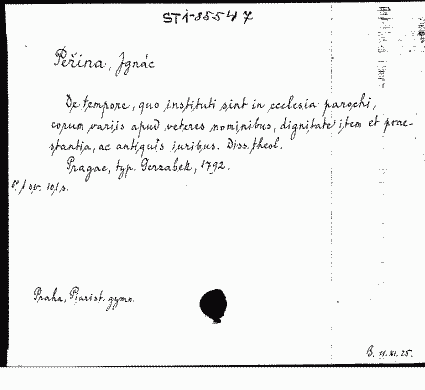 STI-85547
Peřina, Ignác
De tempore, quo instituti sint in ecclesia parochi,
eorum variis apud veteres nominibus, dignitate item et prae-
stantia, ac antiquis iuribus. Diss. theol.
Pragae, typ. Gerzabek, 1792.
Praha, Piarist. gymn.